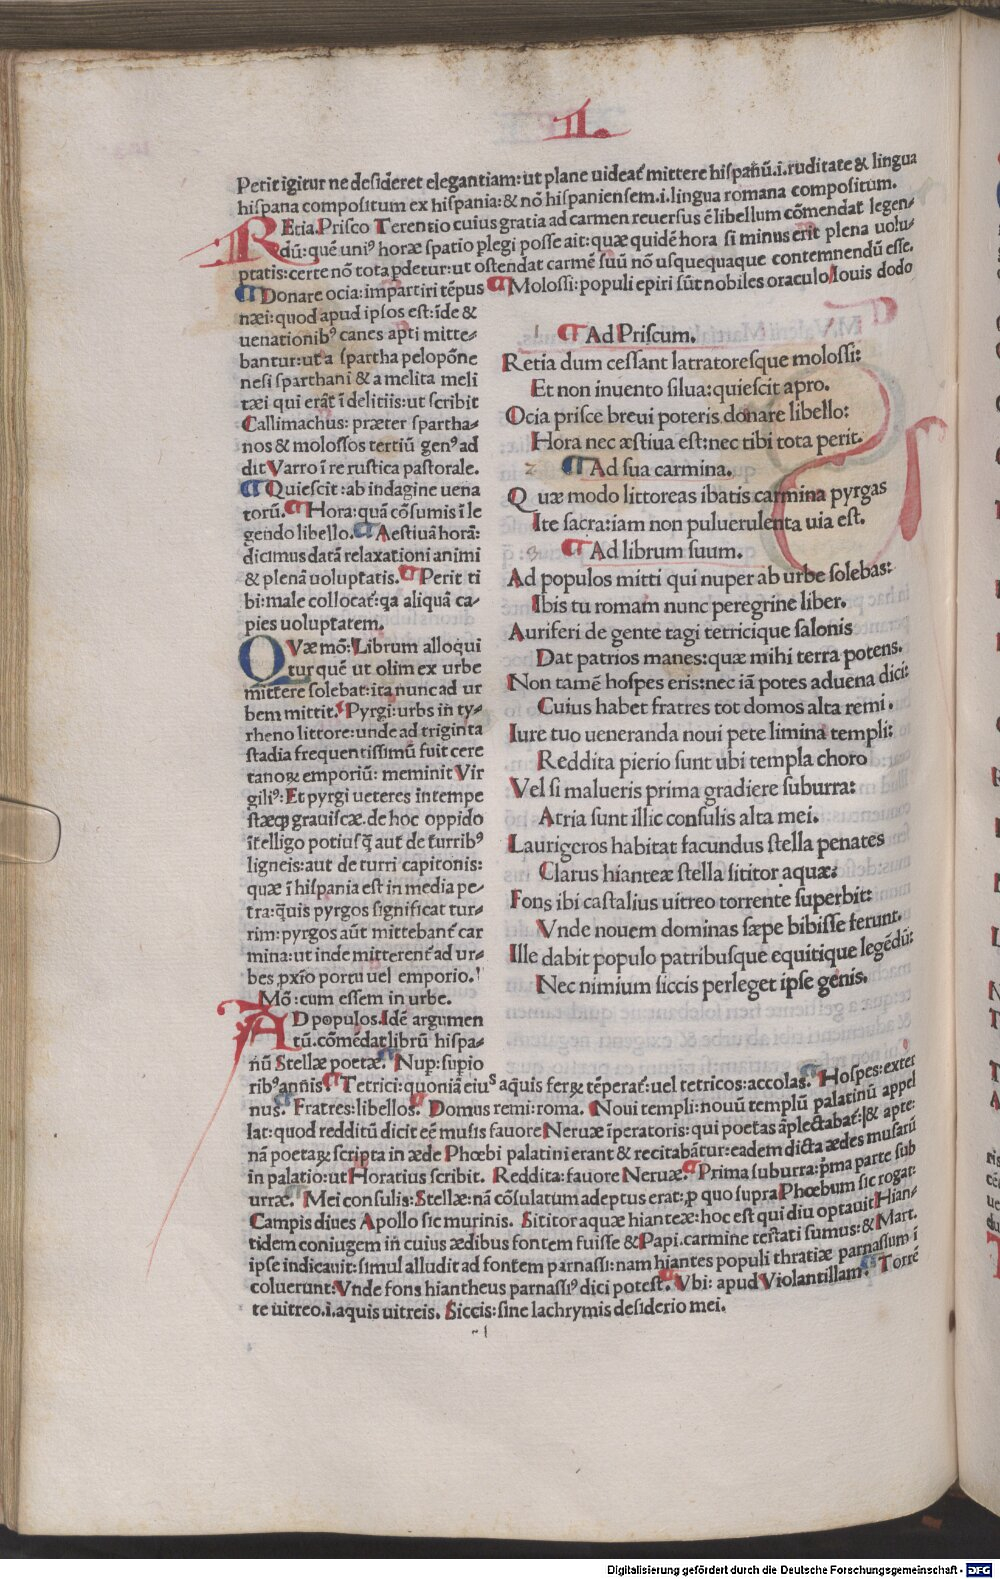 II.
Petit igitur ne desideret elegantiam: ut plane uideat᷑ mittere hispanũ.i.ruditate & lingua
hispana compositum ex hispania: & nõ hispaniensem.i.lingua romana compositum.
REtia. Prisco Terentio cuius gratia ad carmen reuersus ẽ libellum cõmendat legen-
dũ: quẽ uniꝰ horæ spatio plegi posse ait: quæ quidẽ hora si minus erit plena uolu-
ptatis: certe nõ tota pdetur: ut ostendat carmẽ suũ nõ usquequaque contemnendũ esse.
¶ Donare ocia: impartiri tẽpus ¶ Molossi: populi epiri sũt nobiles oraculo Iouis dodo
næi: quod apud ipsos est: ĩde &
uenationibꝰ canes apti mitte-
bantur: ut a spartha pelopõne
nesi sparthani & a melita meli
tæi qui erãt ĩ delitiis: ut scribit
Callimachus: præter spartha-
nos & molossos tertiũ genꝰ ad
dit Varro ĩ re rustica pastorale.
¶ Quiescit: ab indagine uena
torũ. ¶ Hora: quã cõsumis ĩ le
gendo libello. ¶ Aestiuã horã:
dicimus datã relaxationi animi
& plenã uoluptatis. ¶ Perit ti
bi: male collocat᷑: qa aliquã ca-
pies uoluptatem.
QVæ mõ: Librum alloqui
tur quẽ ut olim ex urbe
mittere solebat: ita nunc ad ur
bem mittit. ¶ Pyrgi: urbs in ty-
rheno littore: unde ad triginta
stadia frequentissimũ fuit cere
tanoꝝ emporiũ: meminit Vir
giliꝰ: Et pyrgi ueteres intempe
stæqꝫ grauiscæ. de hoc oppido
ĩtelligo potiusq̃ aut de turribꝰ
ligneis: aut de turri capitonis:
quæ ĩ hispania est in media pe-
tra: q̃uis pyrgos significat tur-
rim: pyrgos aũt mittebant᷑ car
mina: ut inde mitterent᷑ ad ur-
bes pxĩo portu uel emporio.
Mõ: cum essem in urbe.
AD populos. Idẽ argumen
tũ. cõmẽdat librũ hispa-
nũ Stellæ poetæ. ¶ Nup: supio
ribꝰ annis. ¶ Tetrici: quoniã eiuˢ aquis ferꝝ tẽperat᷑: uel tetricos: accolas. ¶ Hospes: exter
nus. ¶ Fratres: libellos. ¶ Domus remi: roma. Noui templi: nouũ templũ palatinũ appel
lat: quod redditũ dicit eẽ musis fauore Neruæ ĩperatoris: qui poetas ãplectabat᷑: & apte:
nã poetaꝝ scripta in æde Phœbi palatini erant & recitabãtur: eadem dicta ædes musarũ
in palatio: ut Horatius scribit. Reddita: fauore Neruæ. ¶ Prima suburra: p̃ma parte sub
urræ. ¶ Mei consulis: Stellæ: nã cõsulatum adeptus erat: ꝓ quo supra Phœbum sic rogat:
Campis diues Apollo sic murinis. Sititor aquæ hianteæ: hoc est qui diu optauit Hian-
tidem coniugem in cuius ædibus fontem fuisse & Papi. carmine testati sumus: & Mart.
ipse indicauit: simul alludit ad fontem parnassi: nam hiantes populi thratiæ parnasium ĩ
coluerunt: Vnde fons hiantheus parnassiꝰ dici potest. ¶ Vbi: apud Violantillam. ¶ Torrẽ
te uitreo.i.aquis uitreis. Siccis: sine lachrymis desiderio mei.
1 ¶ Ad Priscum.
Retia dum cessant latratoresque molossi:
Et non inuento silua: quiescit apro.
Ocia prisce breui poteris donare libello:
Hora nec æstiua est: nec tibi tota perit.
2 ¶ Ad sua carmina.
Quæ modo littoreas ibatis carmina pyrgas
Ite sacra: iam non puluerulenta uia est.
3 ¶ Ad librum suum.
Ad populos mitti qui nuper ab urbe solebas:
Ibis tu romam nunc peregrine liber.
Auriferi de gente tagi tetricique salonis
Dat patrios manes: quæ mihi terra potens.
Non tamẽ hospes eris: nec iã potes aduena dici:
Cuius habet fratres tot domos alta remi.
Iure tuo ueneranda noui pete limina templi:
Reddita pierio sunt ubi templa choro
Vel si malueris prima gradiere suburra:
Atria sunt illic consulis alta mei.
Laurigeros habitat facundus stella penates
Clarus hianteæ stella sititor aquæ:
Fons ibi castalius uitreo torrente superbit:
Vnde nouem dominas sæpe bibisse ferunt.
Ille dabit populo patribusque equitique legẽdũ:
Nec nimium siccis perleget ipse genis.
Digitalisierung gefördert durch die Deutsche Forschungsgemeinschaft - DFG